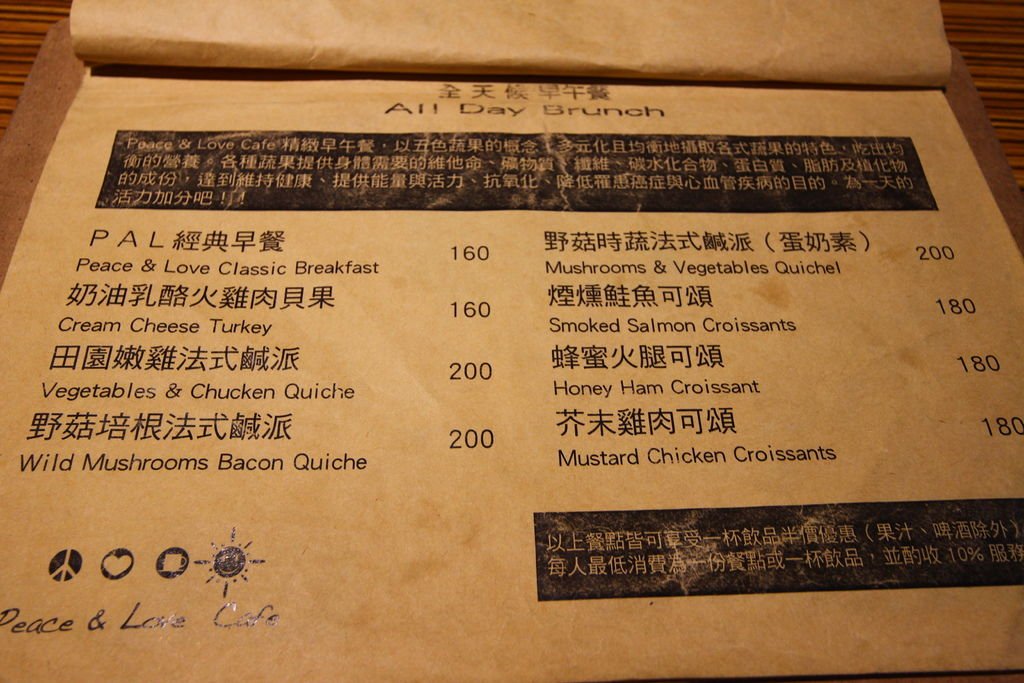 全天候早午餐
All Day Brunch
Peace & Love Cafe 精緻早午餐，以五色蔬果的概念，多元化且均衡地攝取各式蔬果的特色，吃出均
衡的營養。各種蔬果提供身體需要的維他命、礦物質、纖維、碳水化合物、蛋白質、脂肪及植化物
的成份，達到維持健康、提供能量與活力、抗氧化、降低罹患癌症與心血管疾病的目的。為一天的
活力加分吧！！
PAL經典早餐 160
Peace & Love Classic Breakfast
奶油乳酪火雞肉貝果 160
Cream Cheese Turkey
田園嫩雞法式鹹派 200
Vegetables & Chucken Quiche
野菇培根法式鹹派 200
Wild Mushrooms Bacon Quiche
野菇時蔬法式鹹派（蛋奶素） 200
Mushrooms & Vegetables Quichel
煙燻鮭魚可頌 180
Smoked Salmon Croissants
蜂蜜火腿可頌 180
Honey Ham Croissant
芥末雞肉可頌 180
Mustard Chicken Croissants
以上餐點皆可享受一杯飲品半價優惠（果汁、啤酒除外）
每人最低消費為一份餐點或一杯飲品，並酌收10% 服務
Peace & Love Cafe